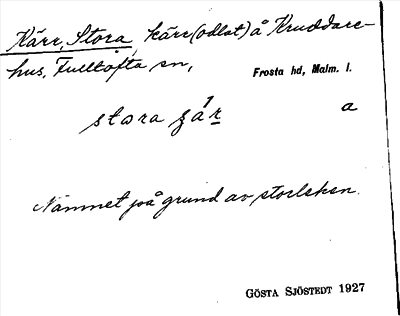 Kärr, Stora, kärr (odlat) å Kruddare-
hus, Fulltofta sn, Frosta hd, Malm. l.
stora a
Namnet på grund av storleken.
GÖSTA SJÖSTEDT 1927